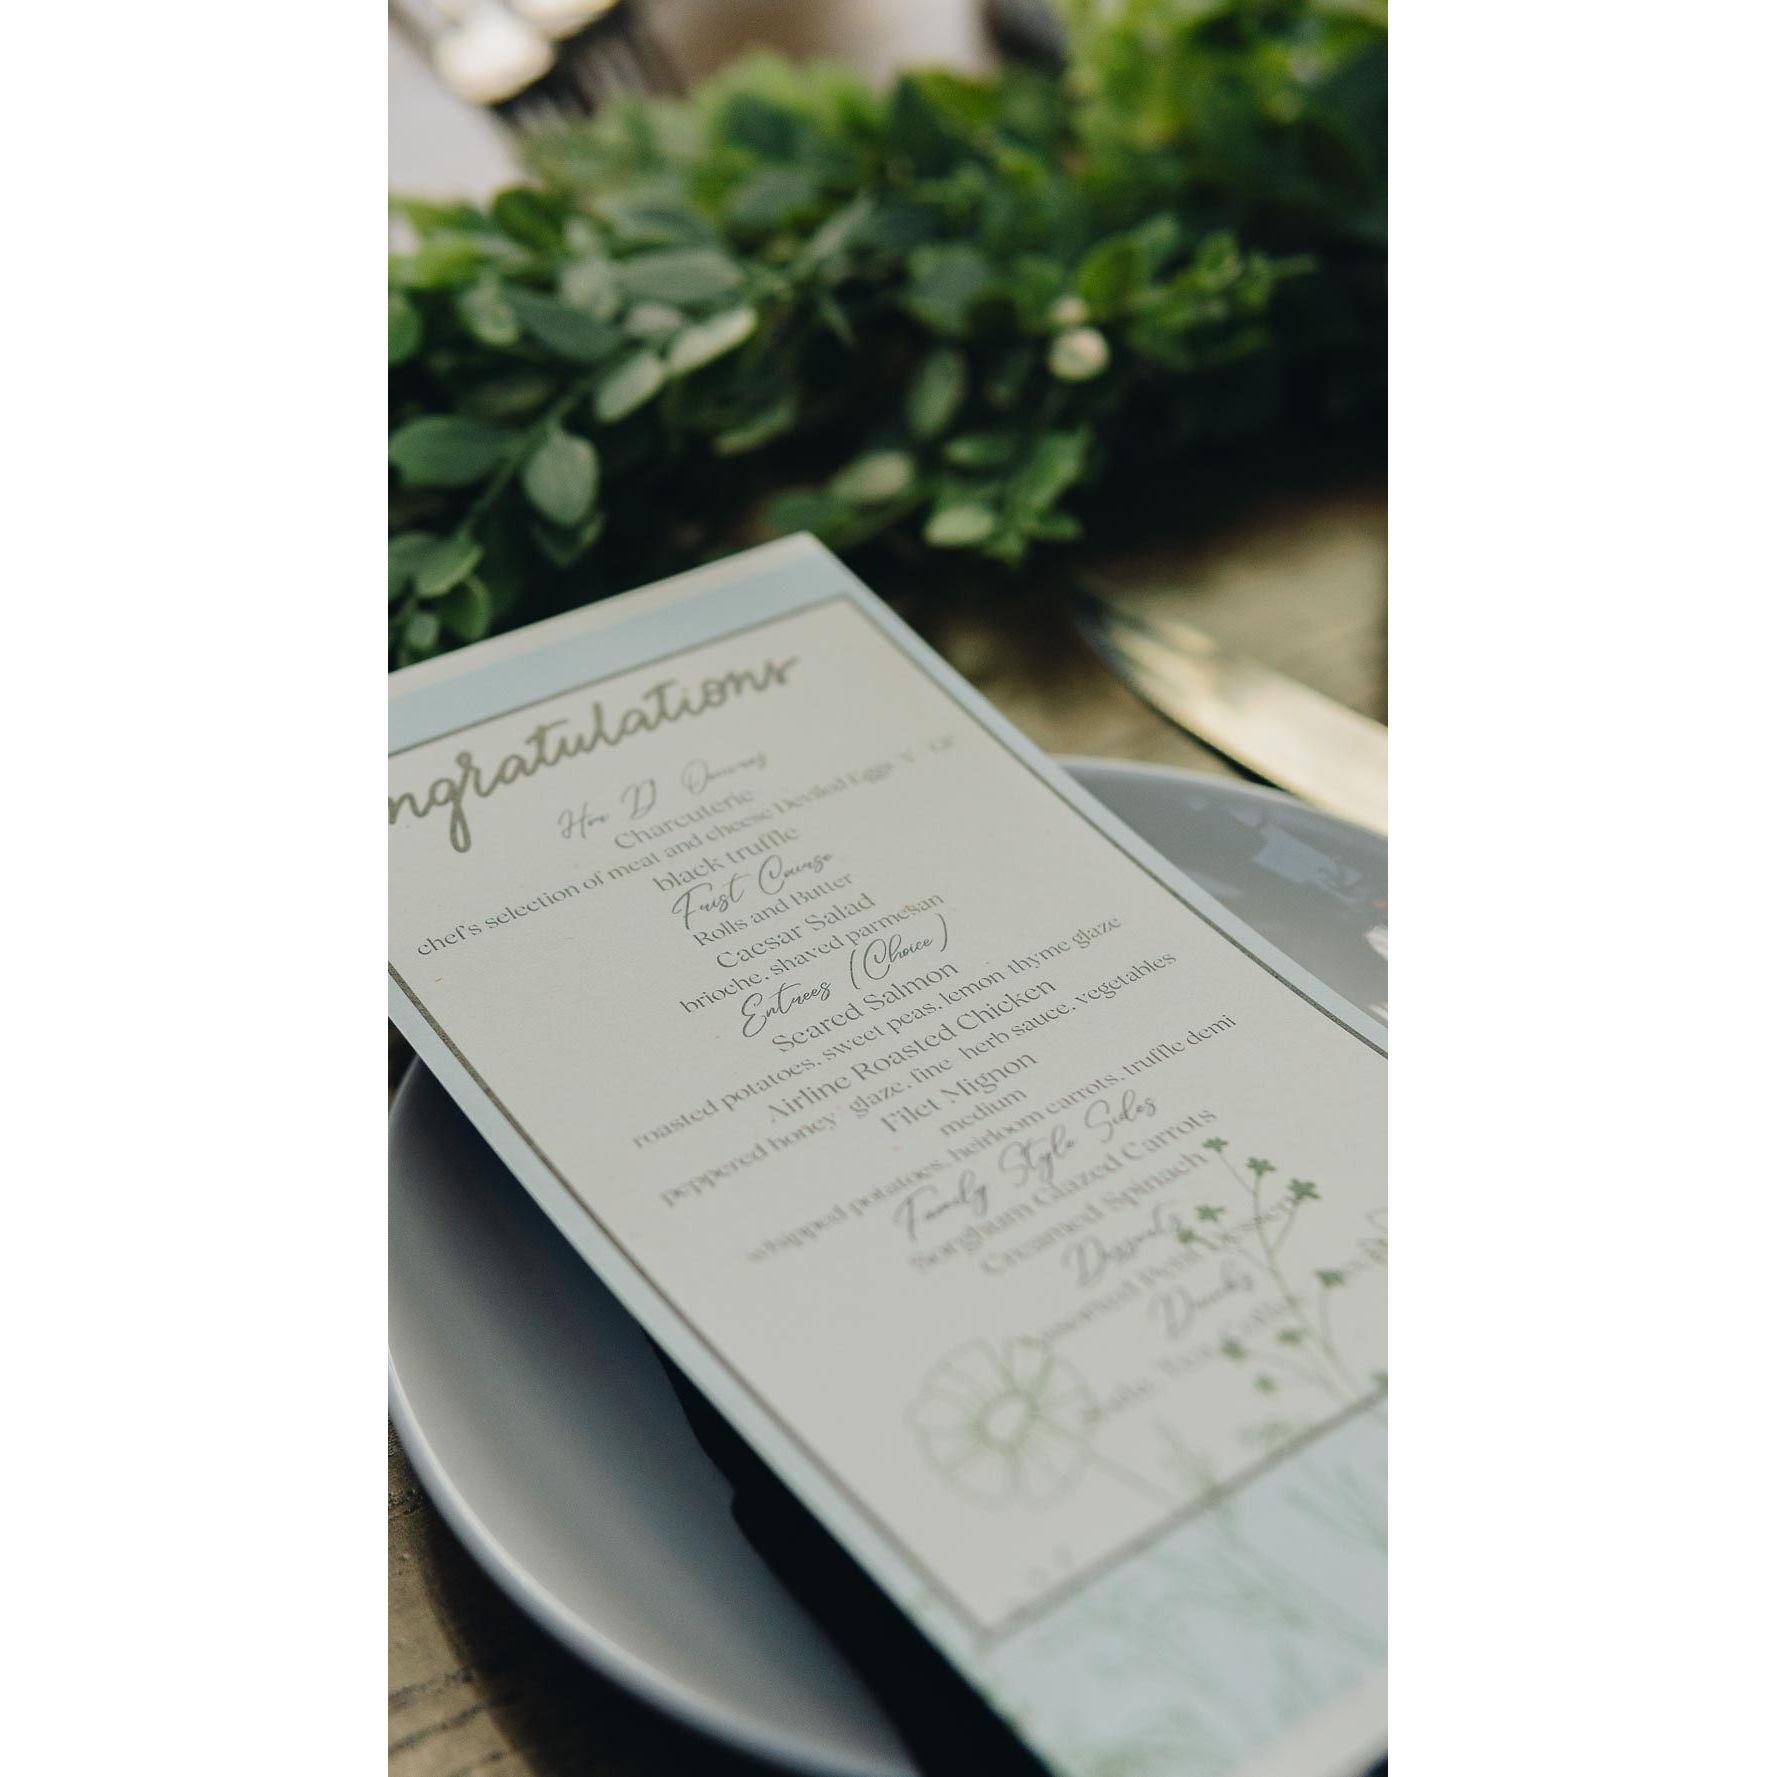 ngratulations
Hor D' Oeuvres
Charcuterie
chef's selection of meat and cheese Deviled Eggs V GF
black truffle
First Course
Rolls and Butter
Caesar Salad
brioche, shaved parmesan
Entrees (Choice)
Seared Salmon
roasted potatoes, sweet peas, lemon thyme glaze
Airline Roasted Chicken
peppered honey glaze, fine herb sauce, vegetables
Filet Mignon
medium
whipped potatoes, heirloom carrots, truffle demi
Family Style Sides
Sorghum Glazed Carrots
Creamed Spinach
Desserts
Assorted Petit Dessert
Drinks
Coffee